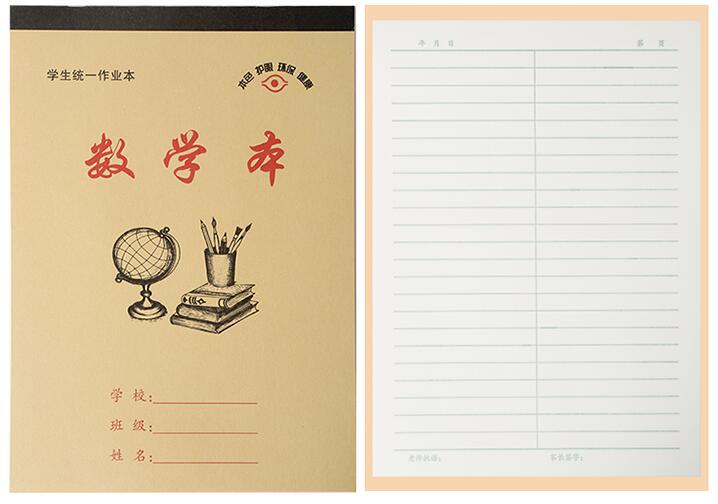 学生统一作业本
本色 护眼 环保 健康
数学本
学校:
班级:
姓名:
年 月 日 第 页
老师批语: 家长签字: